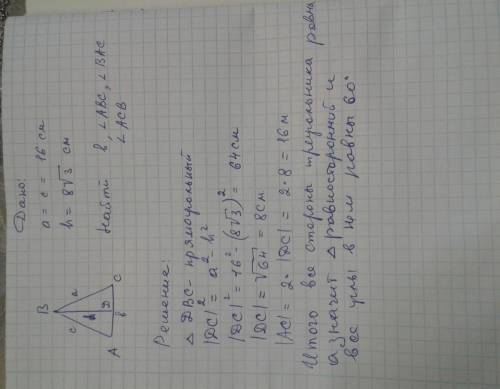 Дано:
a = c = 16 см
h = 8√3 см
Найти b, ∠ABC, ∠BAC
∠ACB
B
c
a
h
D
A
b
C
Решение:
△ DBC - прямоугольный
|DC|² = a² - h²
|DC|² = 16² - (8√3)² = 64 см
|DC| = √64 = 8 см
|AC| = 2 · |DC| = 2 · 8 = 16 м
Итого все стороны треугольника равны
а значит △ равносторонний и
все углы в нем равны 60°